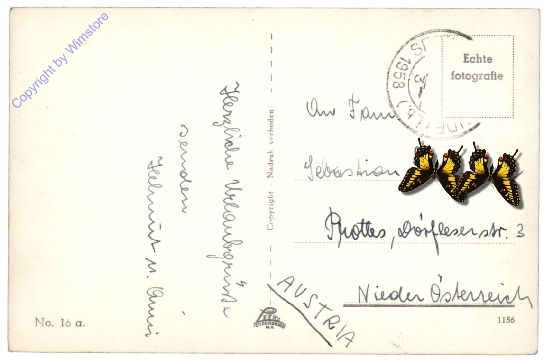 Copyright by Wimstore
Herzliche Urlaubsgrüße
senden
Helmut u. Anni
No. 16 a.
Copyright Nadruk verboden
JS 1958
3
Echte
fotografie
An Fam
Sebastian
Prottes, Dörfleserstr. 3
Nieder Österreich
AUSTRIA
1156